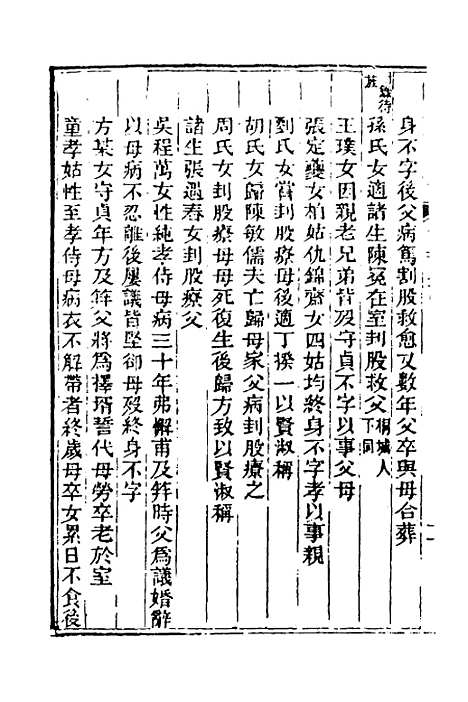 身不字後父病篤割股救愈又數年父卒與母合葬
孫氏女適諸生陳冕在室刲股救父桐城人下同
王璞女因親老兄弟皆歿守貞不字以事父母
張定夔女柏姑仇錦齋女四姑均終身不字孝以事親
劉氏女嘗刲股療母後適丁揆一以賢淑稱
胡氏女歸陳敏儒夫亡歸母家父病刲股療之
周氏女刲股療母母死復生後歸方致以賢淑稱
諸生張遇春女刲股療父
吳程萬女性純孝侍母病三十年弗懈甫及笄時父為議婚辭
以母病不忍離後屢議皆堅卻母歿終身不字
方某女守貞年方及笄父將為擇壻誓代母勞卒老於室
童孝姑性至孝侍母病衣不解帶者終歲母卒女累日不食後